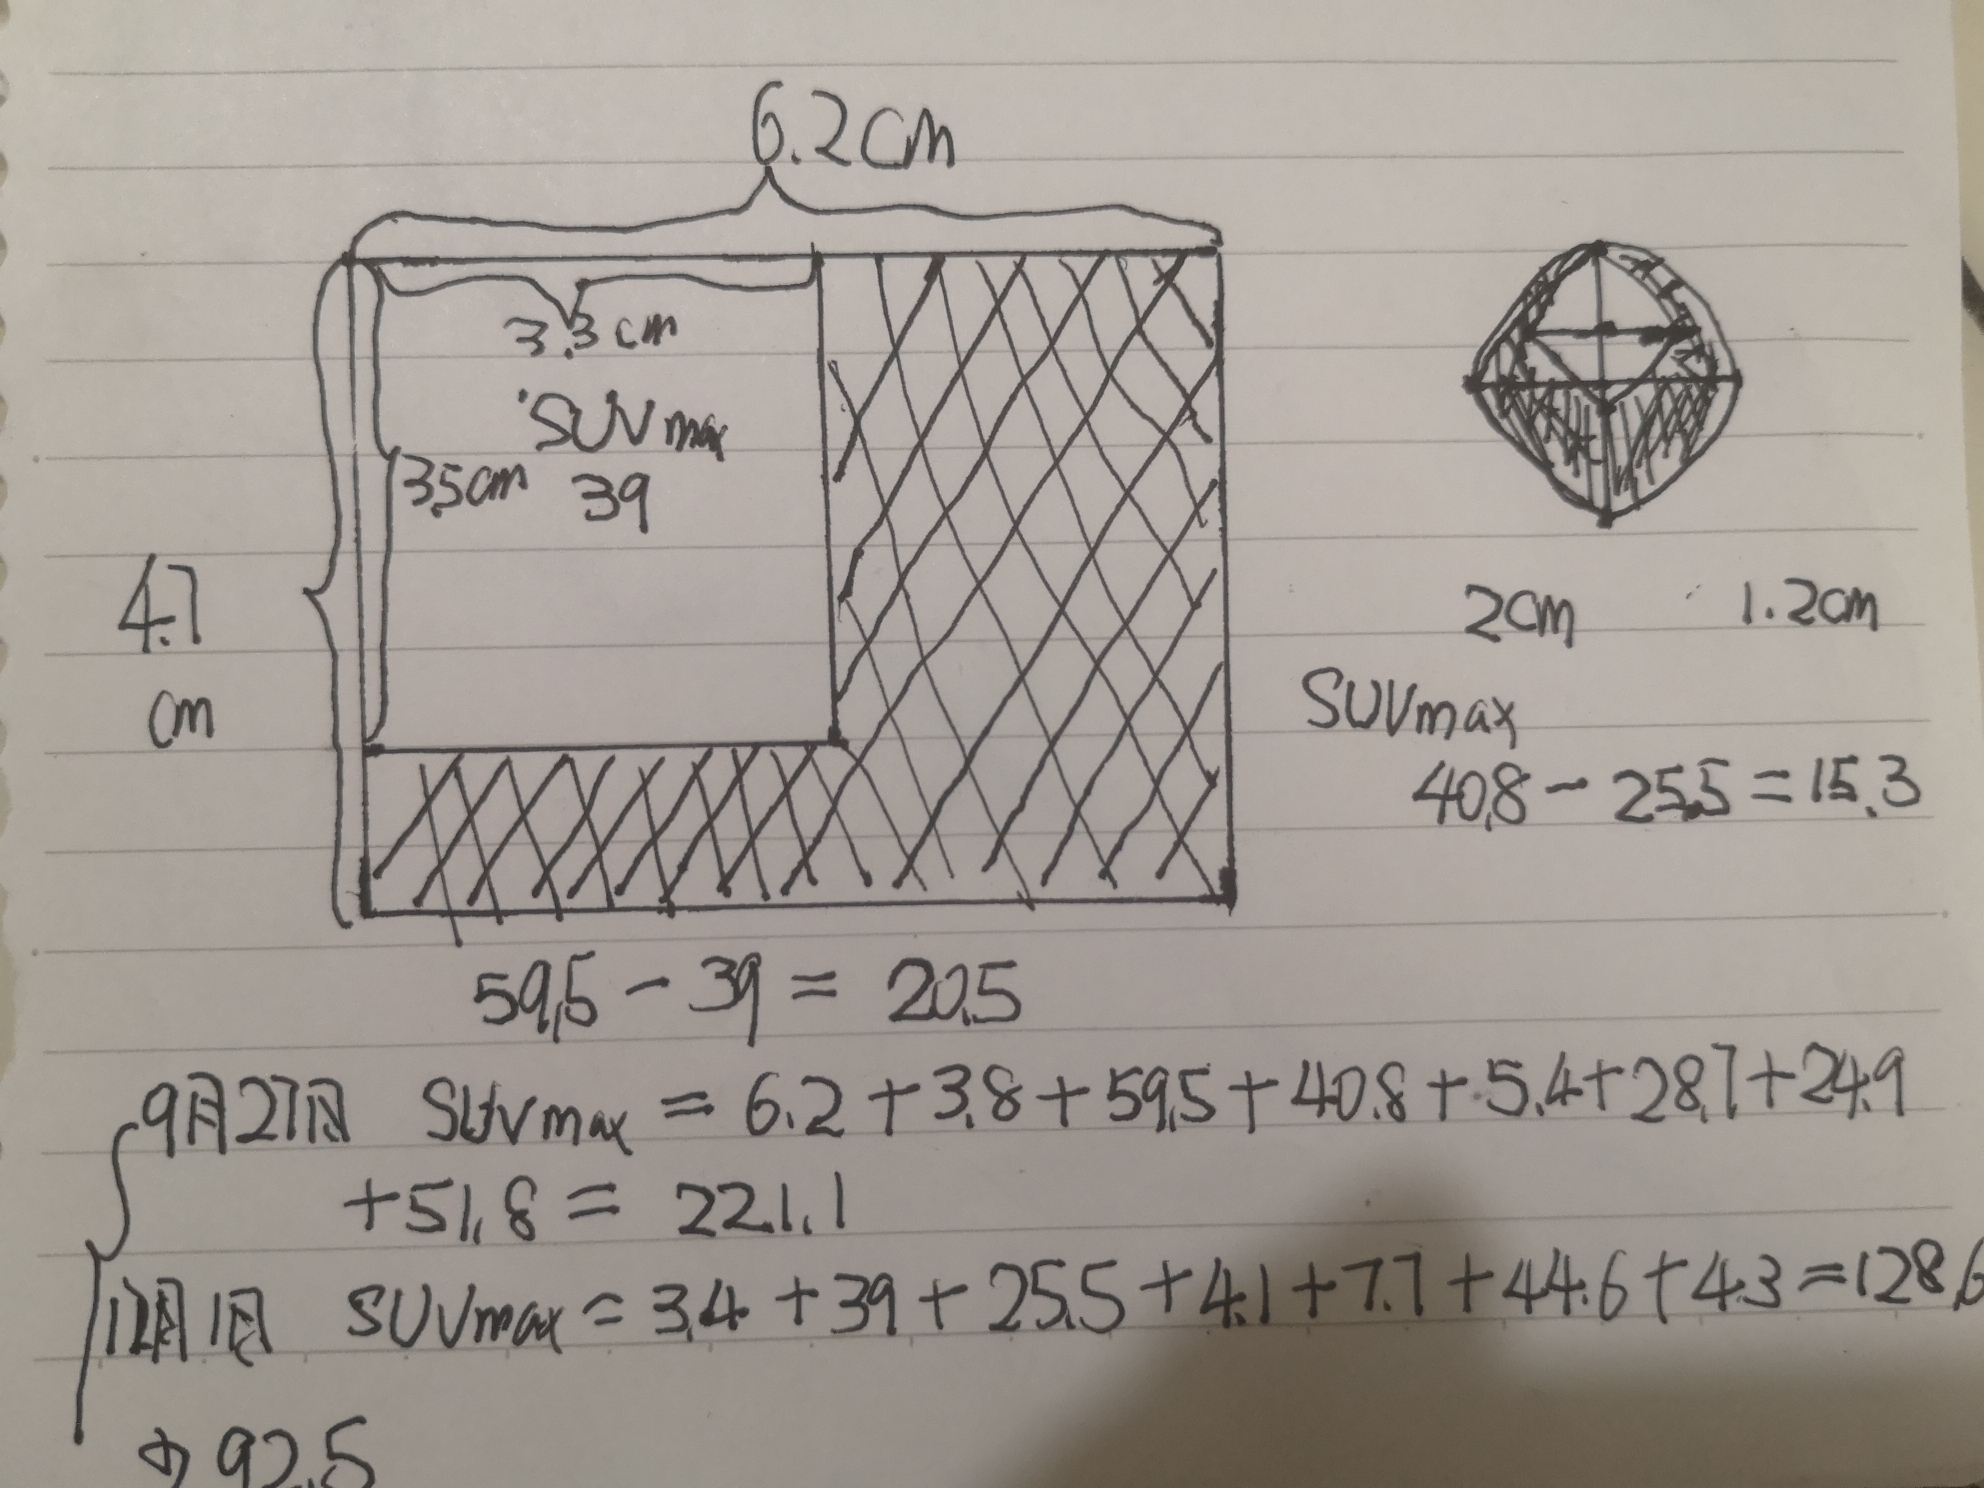 6.2cm
3.3cm
SUVmax
3.5cm 39
4.7
cm
2cm 1.2cm
SUVmax
40.8-25.5=15.3
59.5-39=20.5
9月27日 SUVmax=6.2+3.8+59.5+40.8+5.4+28.7+24.9
+51.8=221.1
12月1日 SUVmax=3.4+39+25.5+4.1+7.7+44.6+4.3=128.6
→92.5